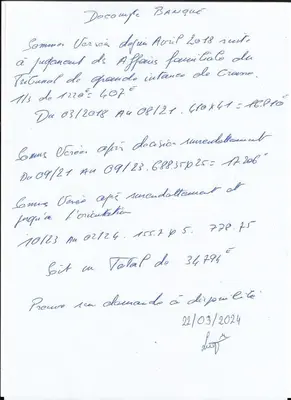 Decompte BANQUE
Sommes Versées depuis Avril 2018 suite
à jugement de Affaires familiales du
Tribunal de grande instance de
1/3 de 1220€ = 407€
Du 03/2018 Au 08/21. 410 x 41 = 16810€
Sommes Versées après decision surendettement
Du 09/21 Au 09/23. 688.35 x 25 = 17206€
Sommes Versées après surendettement et
jusqu'à l'orientation
10/23 Au 02/24. 155.7 x 5. 778.75
Soit un Total de 34794€
Preuve sur demande à disponibilité
22/03/2024